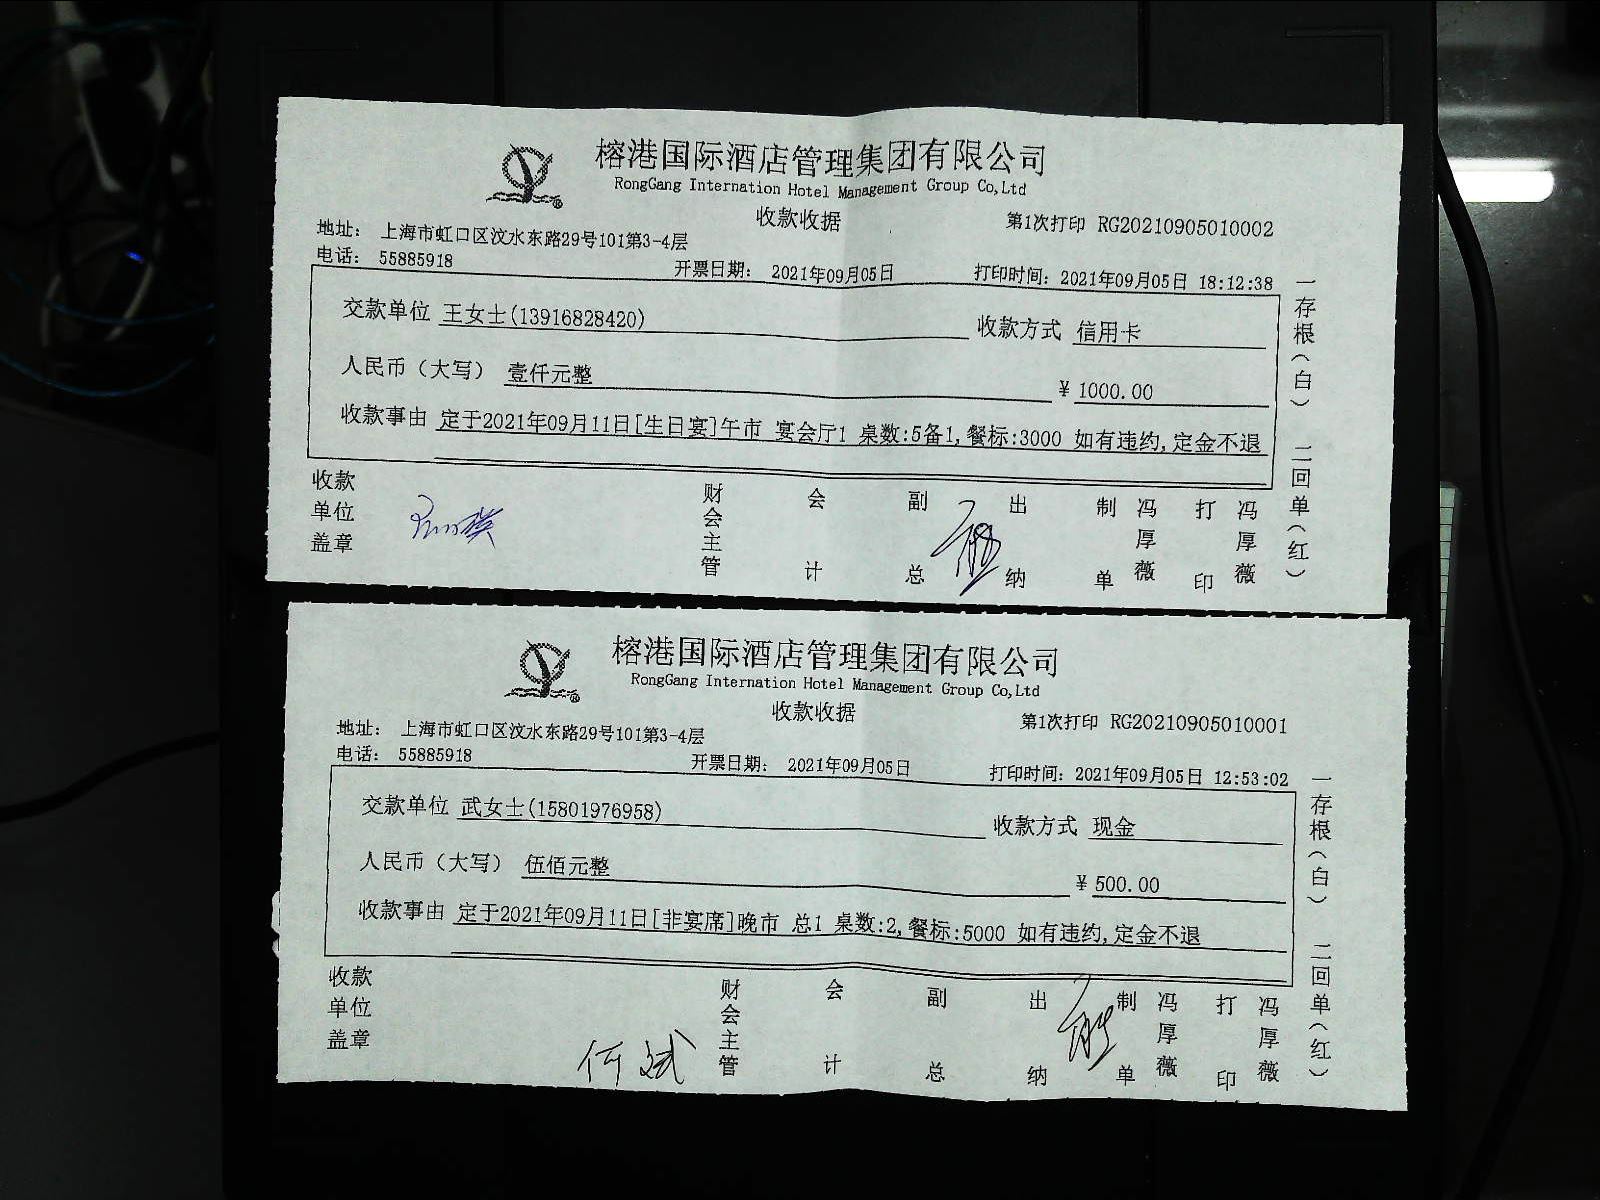 榕港国际酒店管理集团有限公司
RongGang Internation Hotel Management Group Co,Ltd
收款收据
第1次打印 RG20210905010002
地址： 上海市虹口区汶水东路29号101第3-4层
电话： 55885918
开票日期： 2021年09月05日
打印时间：2021年09月05日 18:12:38
交款单位 王女士(13916828420)
收款方式 信用卡
人民币（大写） 壹仟元整
¥ 1000.00
收款事由 定于2021年09月11日[生日宴]午市 宴会厅1 桌数:5备1,餐标:3000 如有违约,定金不退
收款单位盖章
财会主管
会计
副总
出纳
制单 冯厚薇
打印 冯厚薇
一存根（白） 二回单（红）
榕港国际酒店管理集团有限公司
RongGang Internation Hotel Management Group Co,Ltd
收款收据
第1次打印 RG20210905010001
地址： 上海市虹口区汶水东路29号101第3-4层
电话： 55885918
开票日期： 2021年09月05日
打印时间：2021年09月05日 12:53:02
交款单位 武女士(15801976958)
收款方式 现金
人民币（大写） 伍佰元整
¥ 500.00
收款事由 定于2021年09月11日[非宴席]晚市 总1 桌数:2,餐标:5000 如有违约,定金不退
收款单位盖章
何斌
财会主管
会计
副总
出纳
制单 冯厚薇
打印 冯厚薇
一存根（白） 二回单（红）